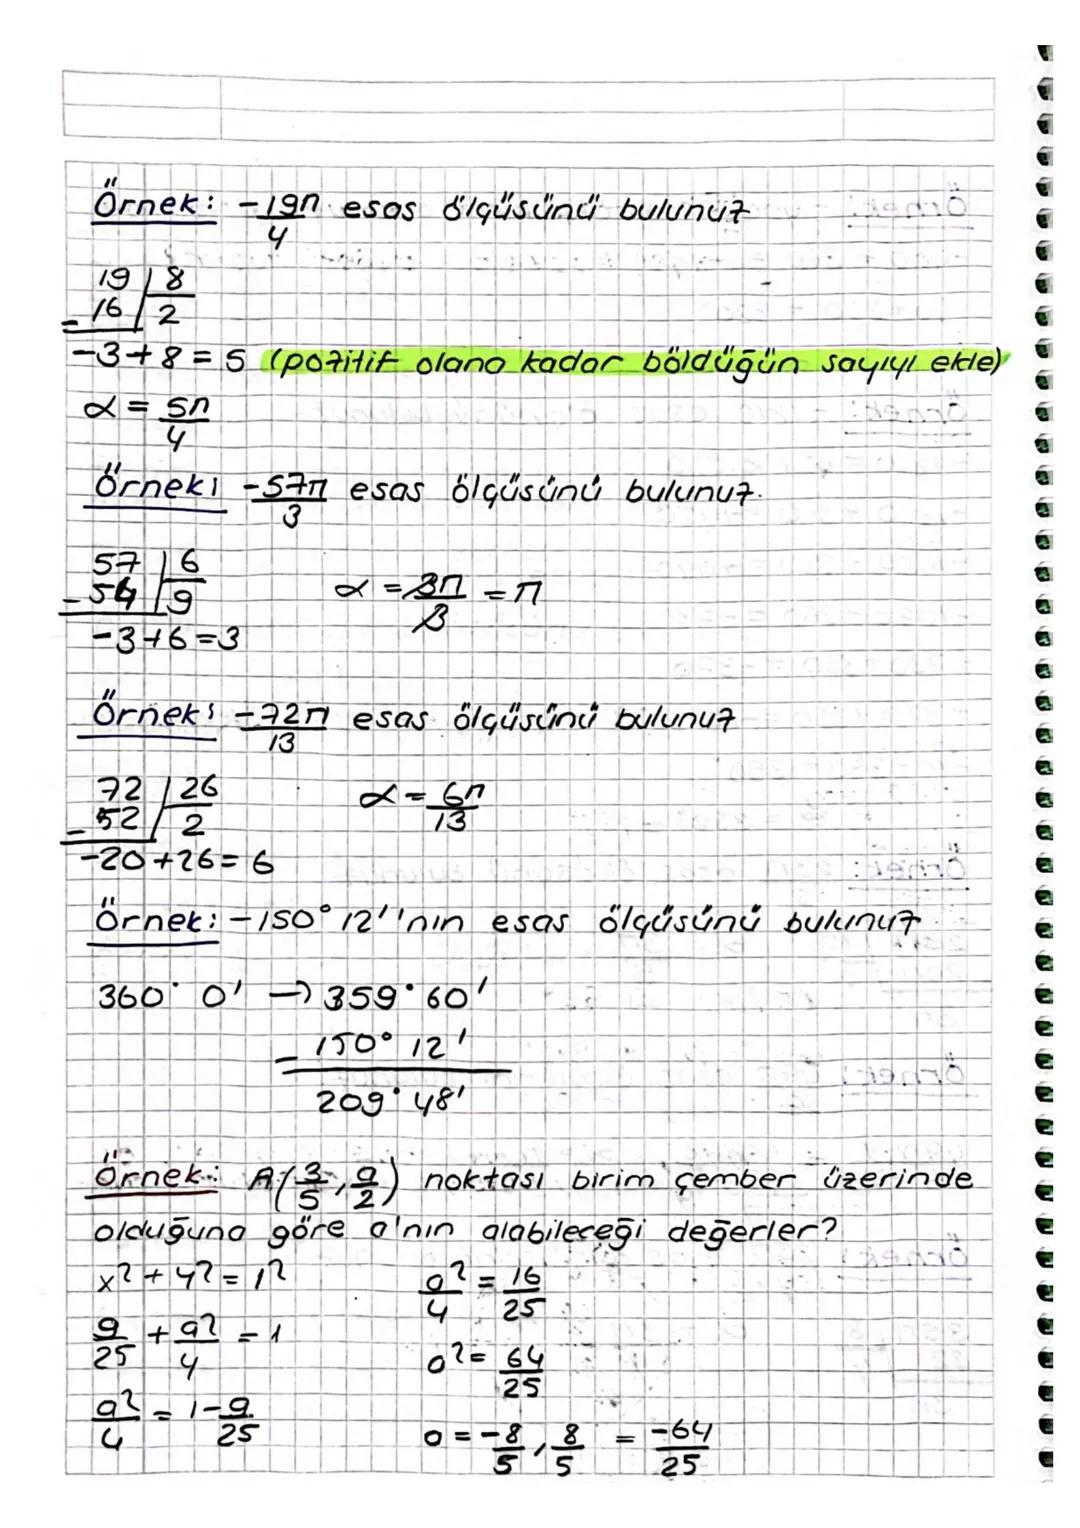 Örnek: -19π/4 esas ölçüsünü bulunuz
19 | 8
- 16 | 2
-3+8=5 (pozitif olana kadar böldüğün sayıyı ekle)
α = 5π/4
Örnek: -57π/3 esas ölçüsünü bulunuz.
57 | 6
- 54 | 9
α = 3π/3 = π
-3+6=3
Örnek: -72π/13 esas ölçüsünü bulunuz
72 | 26
- 52 | 2
α = 6π/13
-20+26=6
Örnek: -150° 12''nın esas ölçüsünü bulunuz
360° 0' → 359° 60'
- 150° 12'
209° 48'
Örnek: A(3/5, a/2) noktası birim çember üzerinde
olduğuna göre a'nın alabileceği değerler?
x²+y²=1²
9/25 + a²/4 = 1
a²/4 = 1-9/25
a²/4 = 16/25
a² = 64/25
a = -8/5, 8/5 = -64/25